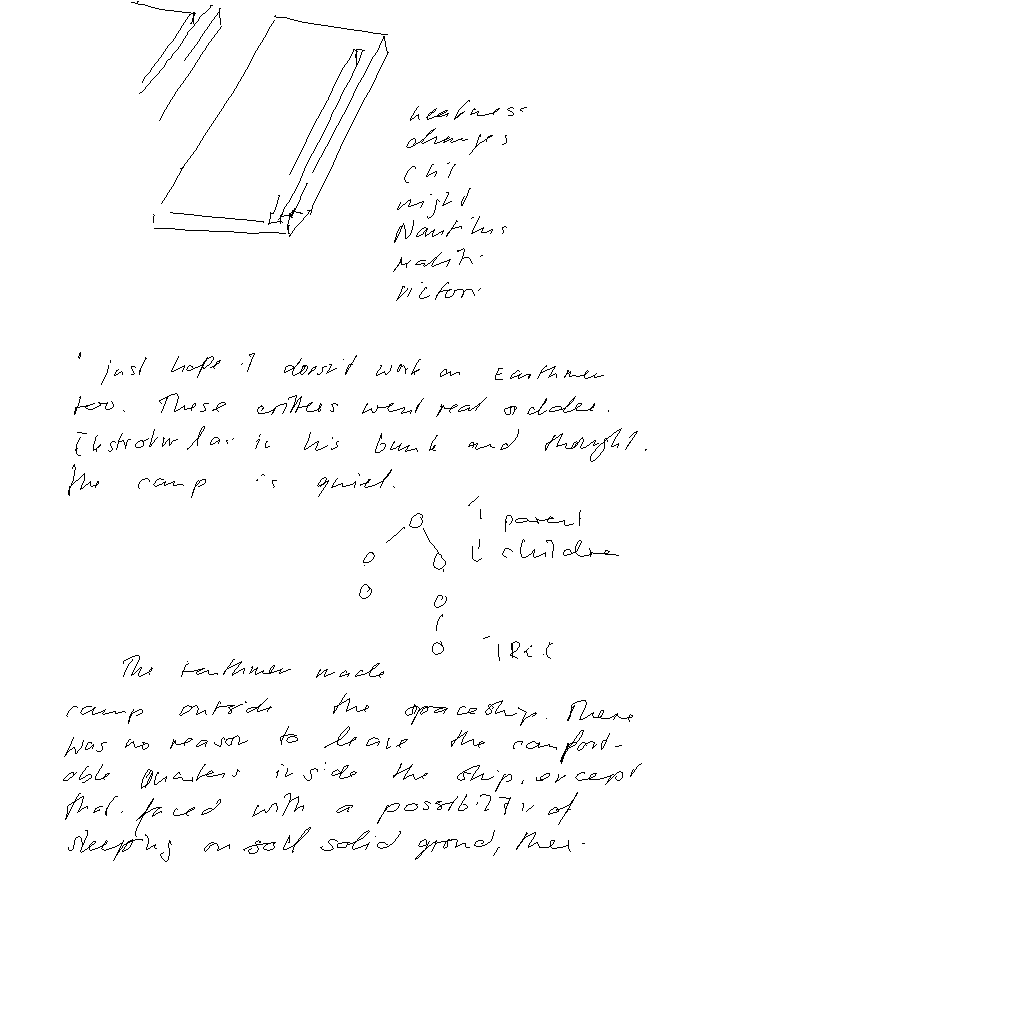 weakness
changes
night
Nautilus
just hope it doesn't work on Earthmen
too. These critters went real
in his bunk and thought.
The camp is quiet.
parent
children
The Earthmen made
camp outside the spaceship. There
was no reason to leave the comfort-
able quarters inside the ship, except
that faced with a possibility of
sleeping on soil solid grond,